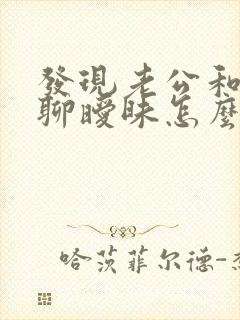 發現老公和
聊曖昧怎麼
哈茨菲尔德-杰